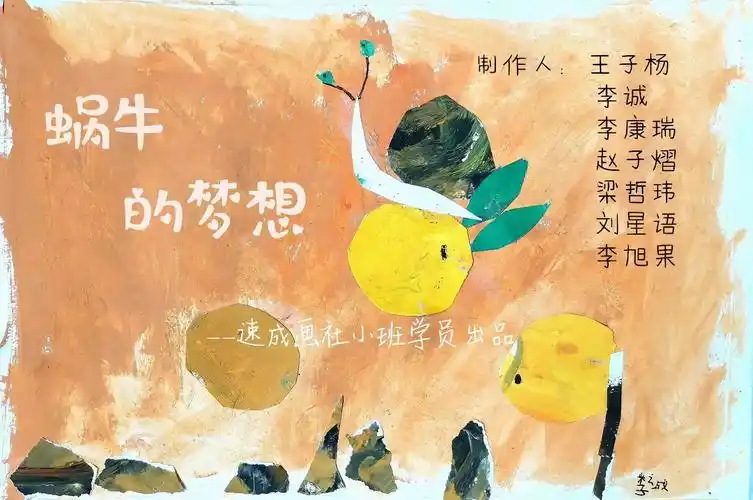 蜗牛
的梦想
制作人：王子杨
李诚
李康瑞
赵子熠
梁哲玮
刘星语
李旭果
--速成画社小班学员出品